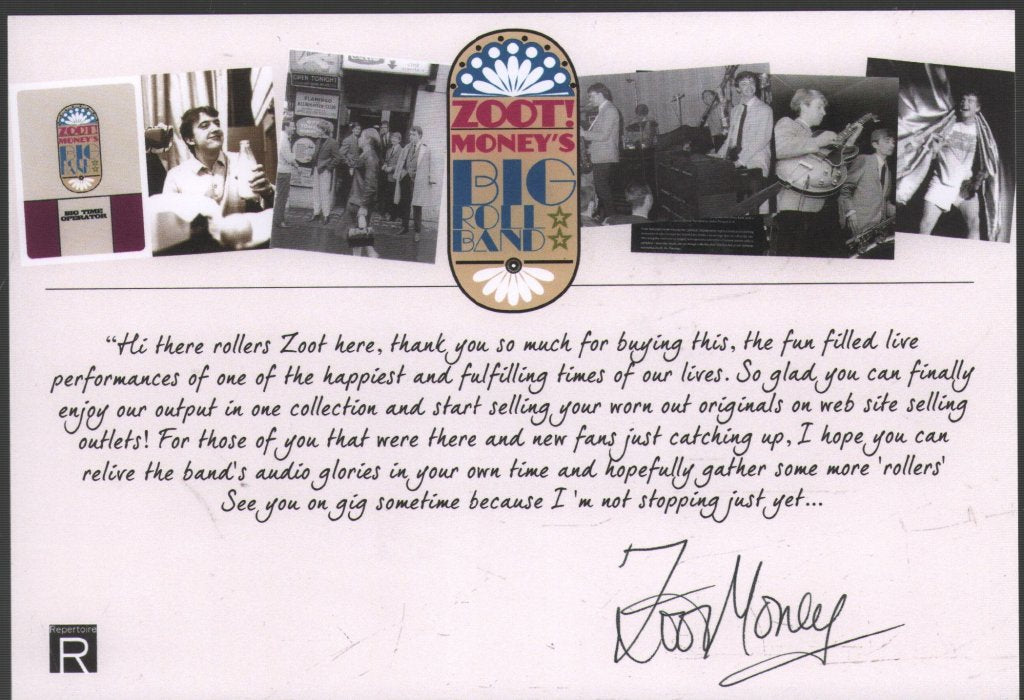 ZOOT!
MONEY'S
BIG
ROLL
BAND
BIG TIME
OPERATOR
OPEN TONIGHT
FLAMINGO
ZOOT!
MONEY'S
BIG
ROLL
BAND
“Hi there rollers Zoot here, thank you so much for buying this, the fun filled live
performances of one of the happiest and fulfilling times of our lives. So glad you can finally
enjoy our output in one collection and start selling your worn out originals on web site selling
outlets! For those of you that were there and new fans just catching up, I hope you can
relive the band's audio glories in your own time and hopefully gather some more 'rollers'
See you on gig sometime because I 'm not stopping just yet...
Zoot Money
Repertoire
R